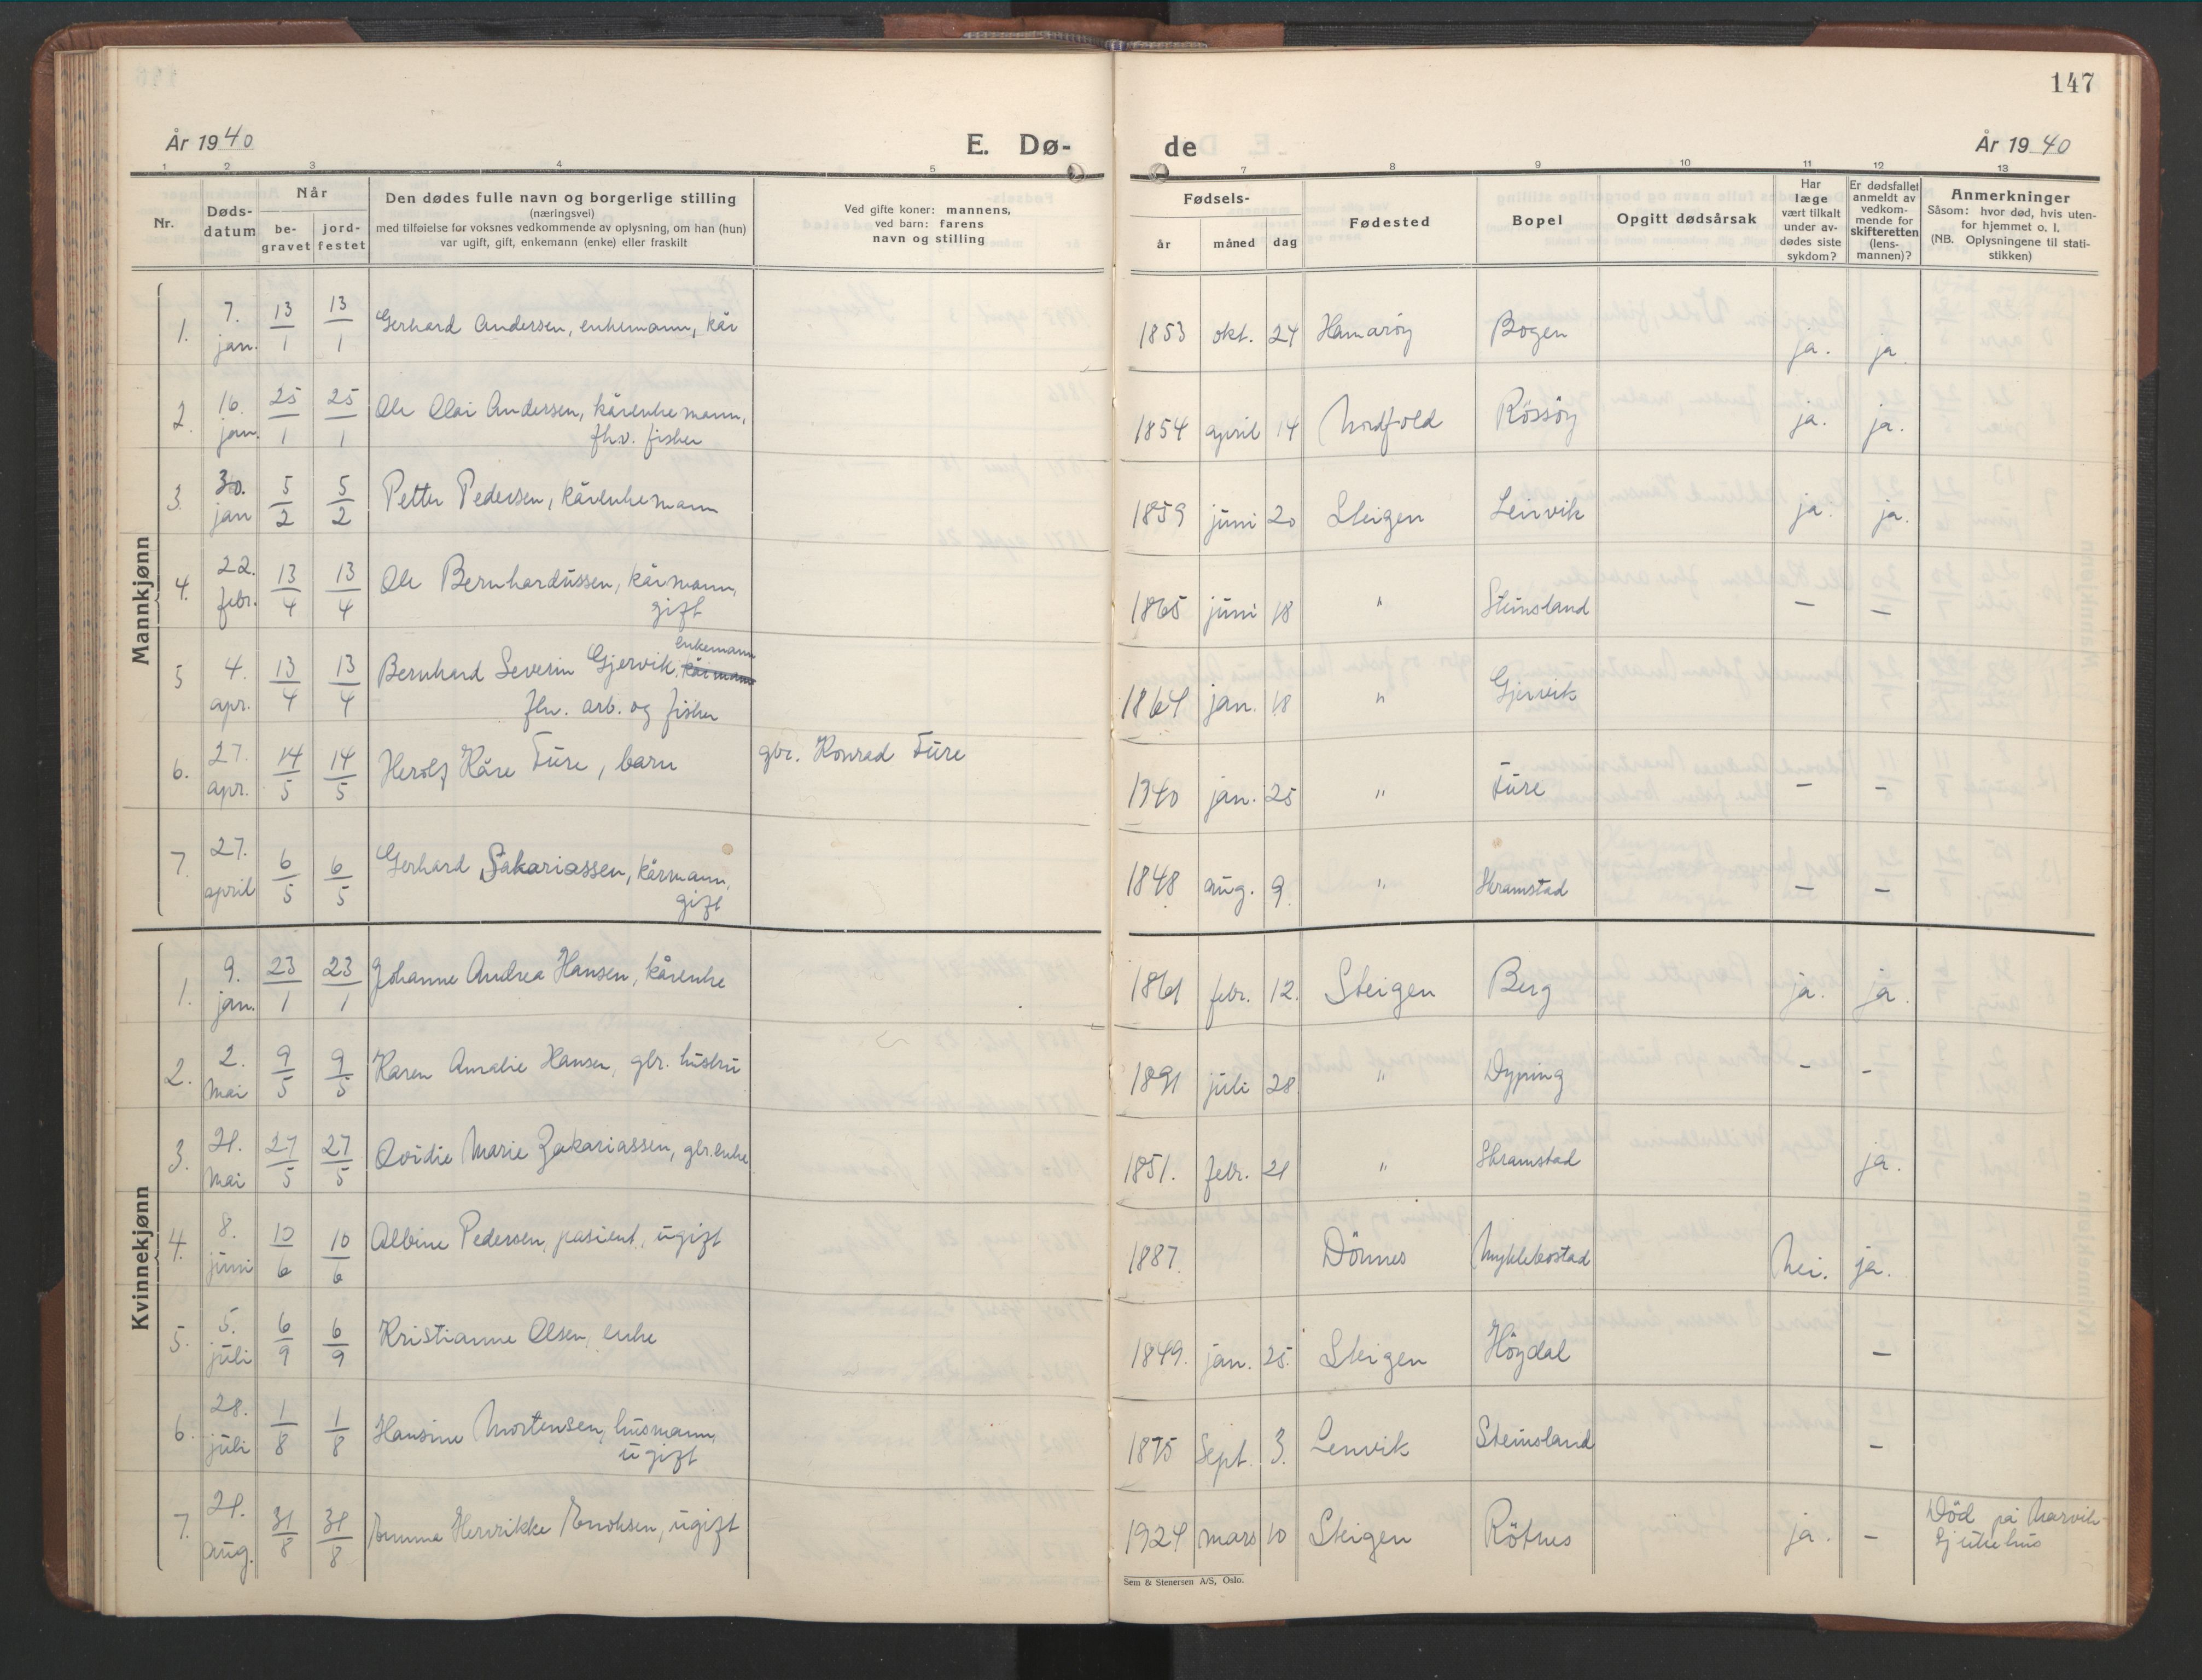 147
År 1940
E. Dø-
de
År 1940
1 2 3 4 5 7 8 9 10 11 12 13
Nr.
Døds-
datum
Når
be-
gravet
jord-
festet
Den dødes fulle navn og borgerlige stilling
(næringsvei)
med tilføielse før voksnes vedkommende av oplysning, om han (hun)
var ugift, gift, enkemann (enke) eller fraskilt
Ved gifte koner: mannens,
ved barn: farens
navn og stilling
Fødsels-
år
måned
dag
Fødested
Bopel
Opgitt dødsårsak
Har
læge
vært tilkalt
under av-
dødes siste
sykdom?
Er dødsfallet
anmeldt av
vedkom-
mende for
skifteretten
(lens-
mannen)?
Anmerkninger
Såsom: hvor død, hvis uten-
for hjemmet o. l.
(NB. Oplysningene til stati-
stikken)
Mannkjønn
1. 7. jan. 13/1 13/1 Gerhard Andersen, enkemann, kår 1853 okt. 24 Hamarøy Bogen ja. ja.
2. 16. jan. 25/1 25/1 Ole Olai Andersen, kårenkemann,
fhv. fisker 1854 april 14 Nordfold Røssøy ja. ja.
3. 30. jan 5/2 5/2 Petter Pedersen, kårenkemann 1859 juni 20 Steigen Leinvik ja. ja.
4. 22. febr. 13/4 13/4 Ole Bernhardussen, kårmann,
gift 1865 juni 18 " Steinsland — —
5 4. apr. 13/4 13/4 Bernhard Severin Gjervik, kårmann enkemann
fhv. arb. og fisker 1864 jan. 18 " Gjervik
6. 27. apr. 14/5 14/5 Herolf Kåre Fure, barn gbr. Konrad Fure 1940 jan. 25 " Fure — —
7. 27. april 6/5 6/5 Gerhard Sakariassen, kårmann,
gift 1848 aug. 9. " Skramstad — —
Kvinnekjønn
1. 9. jan. 23/1 23/1 Johanne Andrea Hansen, kårenke 1861 febr. 12. Steigen Berg ja. ja.
2. 2. Mai 9/5 9/5 Karen Amalie Hansen, gbr. hustru 1891 juli 28 " Dyping - -
3. 21. Mai 27/5 27/5 Ovidie Marie Zakariassen, gbr.enke 1851. febr. 21 " Skramstad ja.
4. 8. juni 10/6 10/6 Albine Pedersen, pasient, ugift 1887. Dönnes Myklebostad Nei. ja.
5. 5. juli 6/9 6/9 Kristianne Olsen, enke 1849. jan. 25. Steigen Höydal —
6. 28. juli 1/8 1/8 Hansine Mortensen, husmann,
ugift 1875 Sept. 3. Lenvik Steinsland —
7. 21. aug. 31/8 31/8 Emma Henrikke Enoksen, ugift 1924 mars 10 Steigen Rötnes ja. — Död på Narvik
Sjukehus
Sem & Stenersen A/S, Oslo.